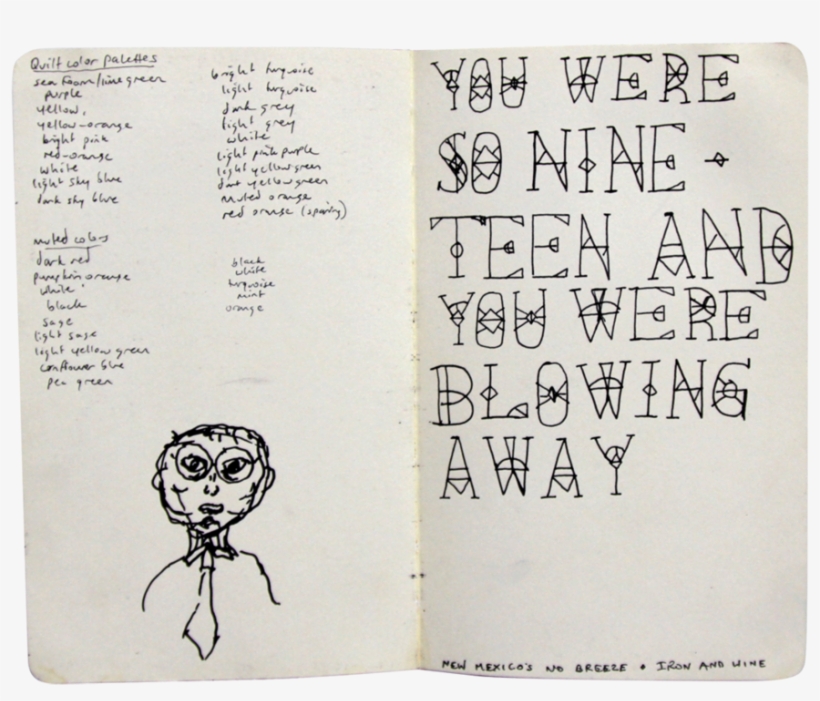 Quilt color palettes
sea foam/lime green
purple
yellow,
yellow-orange
bright pink
red-orange
white
light sky blue
dark sky blue
bright turquoise
light turquoise
dark grey
light grey
white
light pink purple
light yellow green
dark yellow green
muted orange
red orange (sparing)
muted colors
dark red
pumpkin orange
white
black
sage
light sage
light yellow green
cornflower blue
pea green
black
white
turquoise
mint
orange
YOU WERE
SO NINE-
TEEN AND
YOU WERE
BLOWING
AWAY
NEW MEXICO'S NO BREEZE • IRON AND WINE